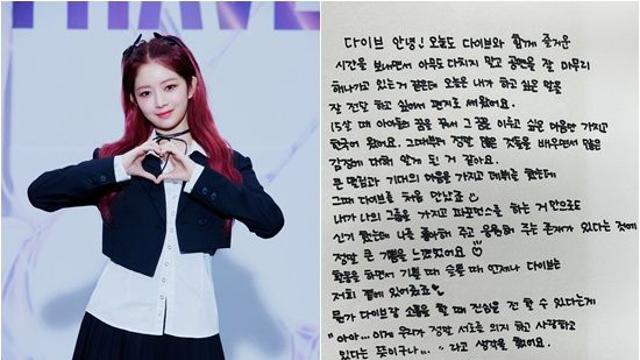 HAVE
다이브 안녕! 오늘도 다이브와 함께 즐거운
시간을 보내면서 아무도 다치지 말고 공연을 잘 마무리
해나가고 있는거 같은데 오늘은 내가 하고 싶은 말을
잘 전달 하고 싶어서 편지로 써왔어요.
15살 때 아이돌의 꿈을 꿔서 그 꿈을 이루고 싶은 마음만 가지고
한국에 왔어요. 그때부터 정말 많은 것들을 배우면서 많은
감정에 대해 알게 된 거 같아요.
큰 떨림과 기대의 마음을 가지고 데뷔를 했는데
그때 다이브를 처음 만났죠
내가 나의 그룹을 가지고 퍼포먼스를 하는 거 만으로도
신기 했는데 나를 좋아해 주고 응원해 주는 존재가 있다는 것에
정말 큰 기쁨을 느꼈었어요
활동을 하면서 기쁠 때 슬플 때 언제나 다이브는
저희 곁에 있어줬죠
뭔가 다이브랑 소통을 할 때 진심을 전 할 수 있다는게
"아아... 이게 우리가 정말 서로를 의지 하고 사랑하고
있다는 뜻이구나..." 라고 생각을 했어요.